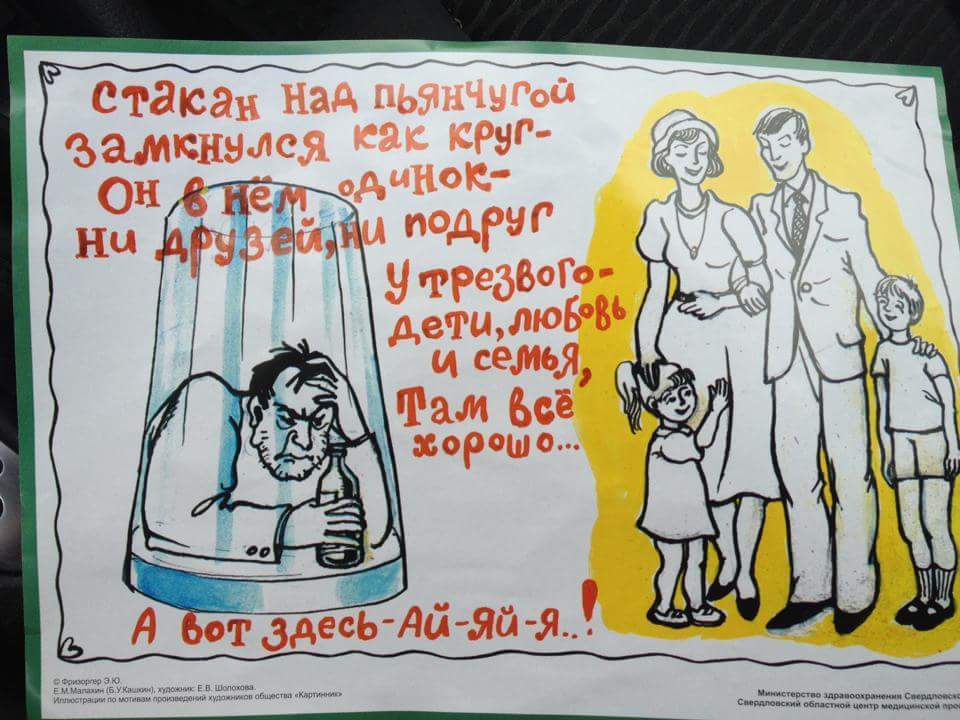 Стакан над пьянчугой
замкнулся как круг-
Он в нём одинок-
ни друзей, ни подруг
У трезвого-
дети, любовь
и семья,
Там всё
хорошо...
А вот здесь-Ай-яй-я..!
© Фризоргер Э.Ю.
Е.М.Малахин (Б.У.Кашкин), художник: Е.В. Шолохова.
Иллюстрации по мотивам произведений художников общества «Картинник»
Министерство здравоохранения
Свердловский областной центр медицинской